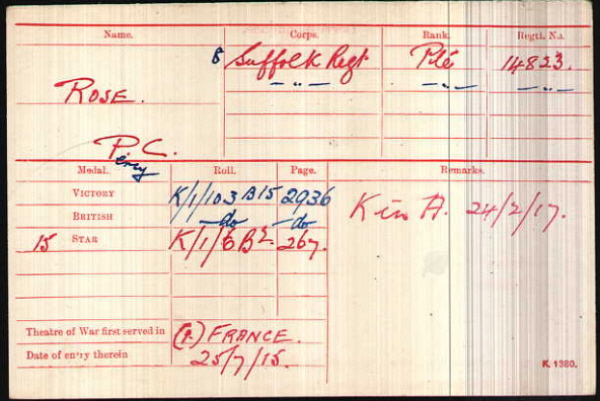 Name. Corps. Rank. Regtl. No.
8 Suffolk Regt Pte 14823.
ROSE. —"— —"— —"—
P.C.
Percy
Medal. Roll. Page. Remarks.
VICTORY K/1/103 B15 2936
BRITISH —do —do
15 STAR K/1/6 B2 267.
K in A. 24/2/17.
Theatre of War first served in (1) FRANCE.
Date of entry therein 25/7/15.
K 1380.